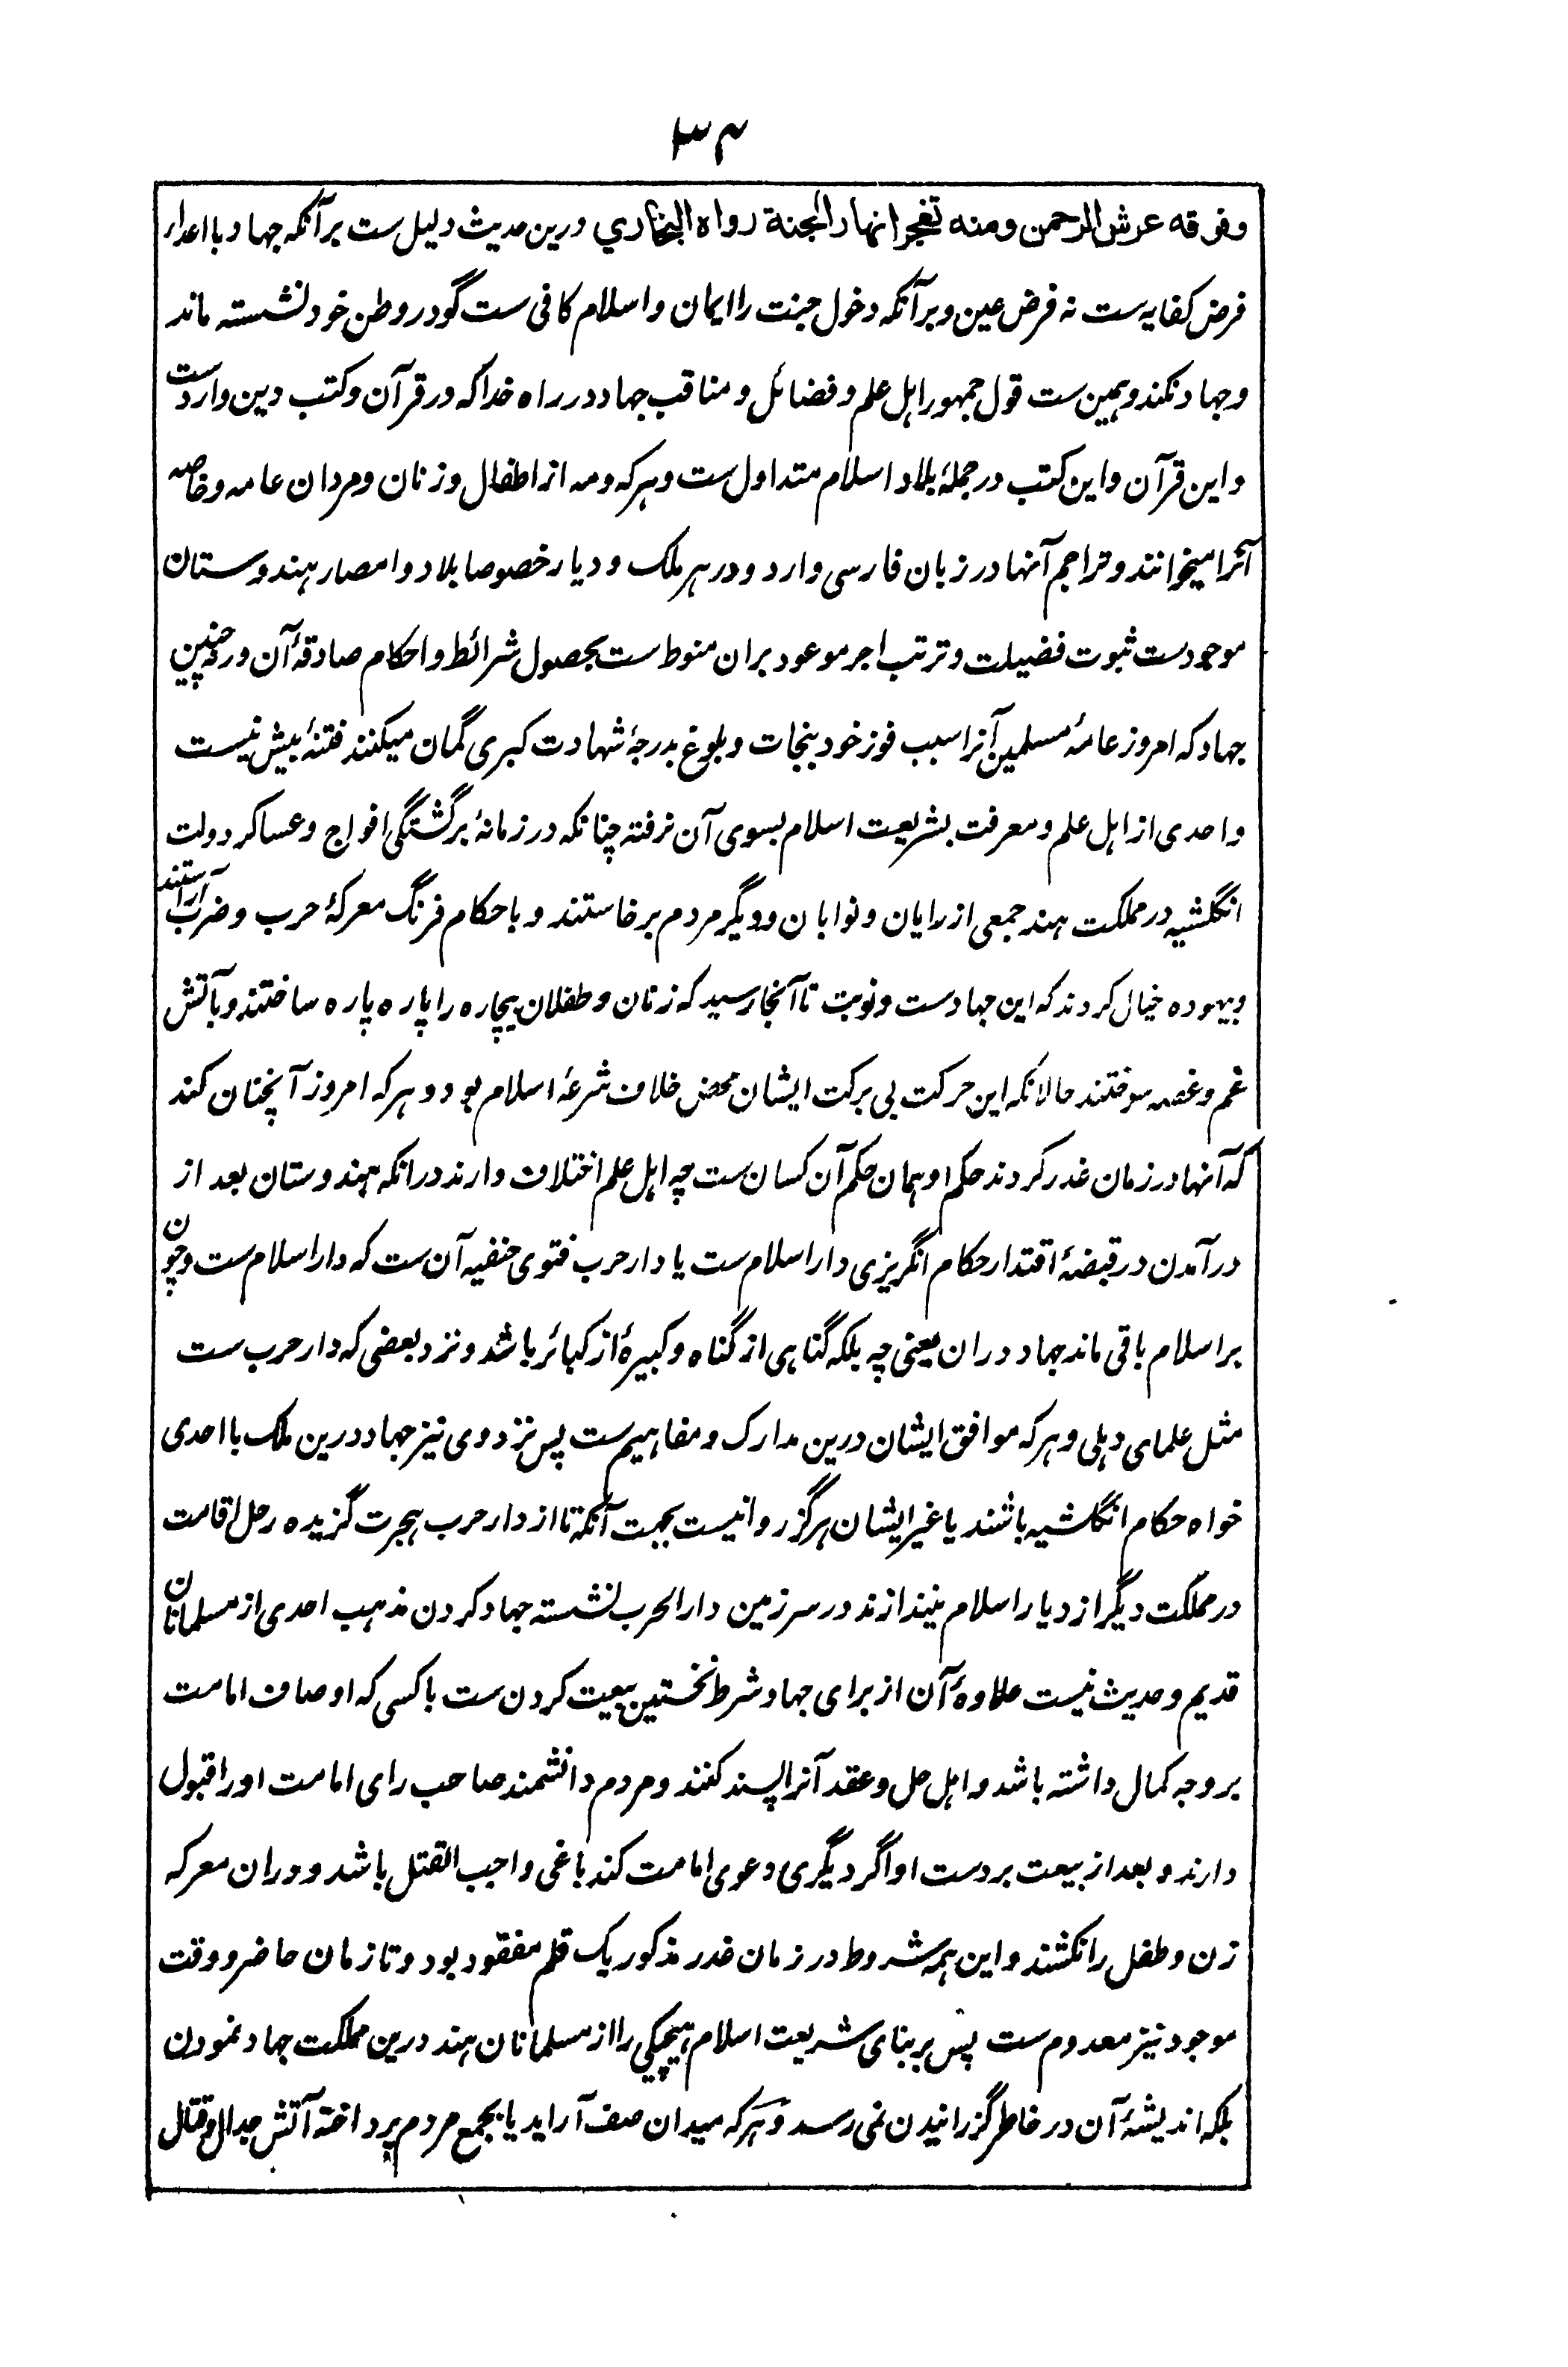 ۳۴
وفرقه عرش الرحمن ومنه تفجر انهار الجنة رواه البخاري درین حدیث دلیل ست بر آنکه جهاد با اعداء
فرض کفایه ست نه فرض عین و بر آنکه دخول جنت را ایمان و اسلام کافی ست گو در وطن خود نشسته ماند
و جهاد نکند و همین ست قول جمهور اهل علم و فضائل و مناقب جهاد در راه خدا که در قرآن و کتب دین وارد ست
و این قرآن و این کتب در جملۀ بلاد اسلام متداول ست و هر که ومه از اطفال و زنان و مردان عامه و خاصه
آنرا میخوانند و تراجم آنها در زبان فارسی وارد و در هر ملک و دیار خصوصا بلاد و امصار هندوستان
موجودست ثبوت فضیلت و ترتب اجر موعود بران منوط ست بحصول شرائط و احکام صادقۀ آن ورنه چنین
جهاد که امروز عامۀ مسلمین آنرا سبب فوز خود بنجات و بلوغ بدرجۀ شهادت کبری گمان میکنند فتنۀ بیش نیست
واحدی از اهل علم و معرفت بشریعت اسلام بسوی آن نرفته چنانکه در زمانۀ برگشتگی افواج و عساکر دولت
انگلشیه در مملکت هند جمعی از رایان و نوابان و دیگر مردم برخاستند و با حکام فرنگ معرکۀ حرب و ضرب آراستند
و بیهوده خیال کردند که این جهادست و نوبت تا آنجا رسید که زنان و طفلان بیچاره را پاره پاره ساختند و بآتش
غم و غصه سوختند حالانکه این حرکت بی برکت ایشان محض خلاف شرعۀ اسلام بود و هر که امروز آنچنان کند
که آنها در زمان غدر کردند حکم او همان حکم آن کسان ست چه اهل علم اختلاف دارند درانکه هندوستان بعد از
درآمدن در قبضۀ اقتدار حکام انگریزی دار اسلام ست یا دار حرب فتوی حنفیه آن ست که دار اسلام ست و چون
بر اسلام باقی ماند جهاد دران یعنی چه بلکه گناهی از گناه و کبیرۀ از کبائر باشد و نزد بعضی که دار حرب ست
مثل علمای دهلی و هر که موافق ایشان درین مدارک و مفاهیم ست پس نزد وی نیز جهاد درین ملک با احدی
خواه حکام انگلشیه باشند یا غیر ایشان هرگز روا نیست بجهت آنکه تا از دار حرب هجرت گزیده رحل اقامت
در مملکت دیگر از دیار اسلام نیندازند در سرزمین دار الحرب نشسته جهاد کردن مذهب احدی از مسلمانان
قدیم و حدیث نیست علاوۀ آن از برای جهاد شرط نخستین بیعت کردن ست با کسی که اوصاف امامت
بر وجه کمال داشته باشد و اهل حل و عقد آنرا پسند کنند و مردم دانشمند صاحب رای امامت او را قبول
دارند و بعد از بیعت بر دست او اگر دیگری دعوی امامت کند باغی واجب القتل باشد و دران معرکه
زن و طفل را نکشند و این همه شروط در زمان غدر مذکور یک قلم مفقود بود و تا زمان حاضر و وقت
موجود نیز معدوم ست پس بر بنای شریعت اسلام هیچیکی را از مسلمانان هند درین مملکت جهاد نمودن
بلکه اندیشۀ آن در خاطر گزرانیدن نمی رسد و هر که میدان صف آراید یا بجمع مردم پرداخته آتش جدال و قتال